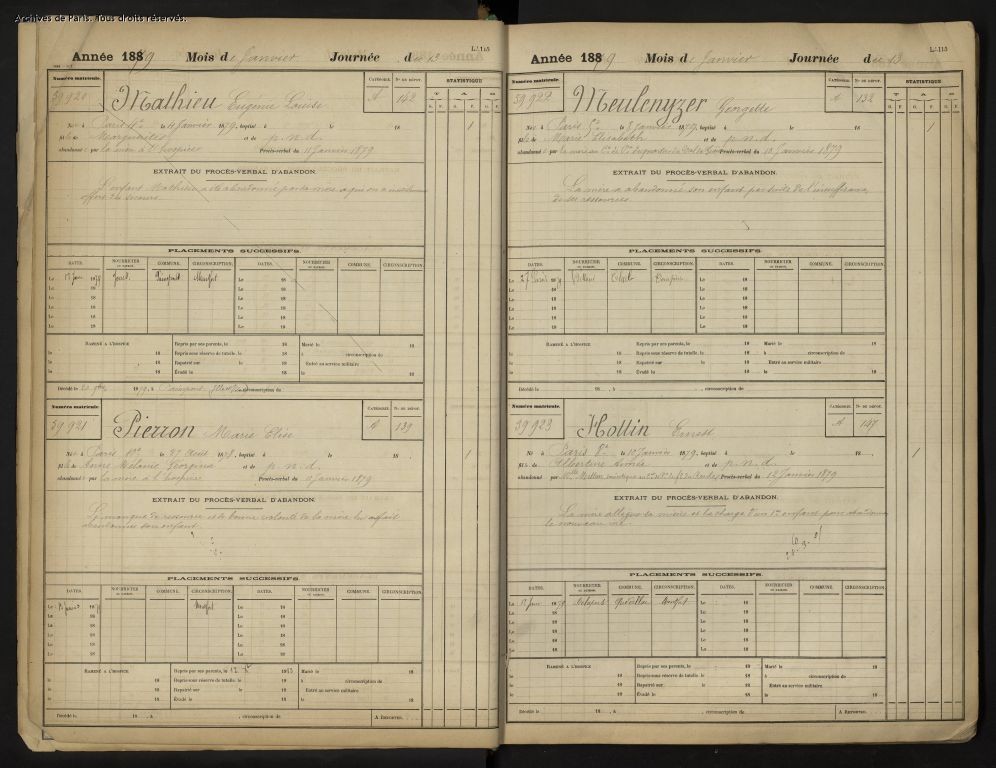 Archives de Paris. Tous droits réservés.
Année 1879 Mois de Janvier Journée du 13
Numéro matricule.
39920
Mathieu Eugénie Louise
CATÉGORIE A
Nos DU DÉPOT. 142
STATISTIQUE
Né à Paris 4e le 4 Janvier 1879, baptisé à le 18
fille de Marguerite et de p.n.d.
abandonné par la mère à l'hospice Procès-verbal du 11 Janvier 1879
EXTRAIT DU PROCÈS-VERBAL D'ABANDON.
L'enfant Mathieu a été abandonné par sa mère à qui on a
offert des secours.
PLACEMENTS SUCCESSIFS.
DATES. NOURRICIER ou patron. COMMUNE. CIRCONSCRIPTION. DATES. NOURRICIER ou patron. COMMUNE. CIRCONSCRIPTION.
Le 15 Janv 1879 Paimpont Montfort Le 18
Le 18 Le 18
Le 18 Le 18
Le 18 Le 18
Le 18 Le 18
Le 18 Le 18
RAMENÉ A L'HOSPICE Repris par ses parents, le 18 Marié le 18
le 18 Repris sous réserve de tutelle, le 18 à circonscription de
le 18 Rapatrié sur le 18 Entré au service militaire
le 18 Évadé le 18
Décédé le 1879, à Paimpont circonscription de
Numéro matricule.
39921
Pierron Marie Elise
CATÉGORIE A
Nos DU DÉPOT. 139
Né à Paris 10e le 27 Août 1878, baptisé à le 18
fille de Anne Mélanie Georgina et de p.n.d.
abandonné par la mère à l'hospice Procès-verbal du 11 Janvier 1879
EXTRAIT DU PROCÈS-VERBAL D'ABANDON.
Le manque de ressources et de bonne volonté de la mère lui a fait
abandonner son enfant.
PLACEMENTS SUCCESSIFS.
DATES. NOURRICIER ou patron. COMMUNE. CIRCONSCRIPTION. DATES. NOURRICIER ou patron. COMMUNE. CIRCONSCRIPTION.
Le 15 Janv 1879 Montfort Le 18
Le 18 Le 18
Le 18 Le 18
Le 18 Le 18
Le 18 Le 18
RAMENÉ A L'HOSPICE Repris par ses parents, le 12 18 Marié le 18
le 18 Repris sous réserve de tutelle, le 18 à circonscription de
le 18 Rapatrié sur le 18 Entré au service militaire
le 18 Évadé le 18
Décédé le 18 , à , circonscription de A REPORTER.
Année 1879 Mois de Janvier Journée du 13
Numéro matricule.
39922
Meulenyzer Georgette
CATÉGORIE A
Nos DU DÉPOT. 132
STATISTIQUE
Né à Paris 5e le 3 Janvier 1879, baptisé à le 18
fille de Marie Elisabeth et de p.n.d.
abandonné par la mère au Procès-verbal du 10 Janvier 1879
EXTRAIT DU PROCÈS-VERBAL D'ABANDON.
La mère a abandonné son enfant par suite de l'insuffisance
de ses ressources.
PLACEMENTS SUCCESSIFS.
DATES. NOURRICIER ou patron. COMMUNE. CIRCONSCRIPTION. DATES. NOURRICIER ou patron. COMMUNE. CIRCONSCRIPTION.
Le 27 1879 Le 18
Le 18 Le 18
Le 18 Le 18
Le 18 Le 18
Le 18 Le 18
RAMENÉ A L'HOSPICE Repris par ses parents, le 18 Marié le 18
le 18 Repris sous réserve de tutelle, le 18 à circonscription de
le 18 Rapatrié sur le 18 Entré au service militaire
le 18 Évadé le 18
Décédé le 18 , à , circonscription de
Numéro matricule.
39923
Hottin Ernest
CATÉGORIE A
Nos DU DÉPOT. 147
Né à Paris 8e le 10 Janvier 1879, baptisé à le 18
fils de Albertine Aimée et de p.n.d.
abandonné par Procès-verbal du 12 Janvier 1879
EXTRAIT DU PROCÈS-VERBAL D'ABANDON.
La mère allègue sa misère et la charge d'un 1er enfant pour abandonner
le nouveau né.
PLACEMENTS SUCCESSIFS.
DATES. NOURRICIER ou patron. COMMUNE. CIRCONSCRIPTION. DATES. NOURRICIER ou patron. COMMUNE. CIRCONSCRIPTION.
Le 15 Janv 1879 Montfort Le 18
Le 18 Le 18
Le 18 Le 18
Le 18 Le 18
Le 18 Le 18
RAMENÉ A L'HOSPICE Repris par ses parents, le 18 Marié le 18
le 18 Repris sous réserve de tutelle, le 18 à circonscription de
le 18 Rapatrié sur le 18 Entré au service militaire
le 18 Évadé le 18
Décédé le 18 , à , circonscription de A REPORTER.